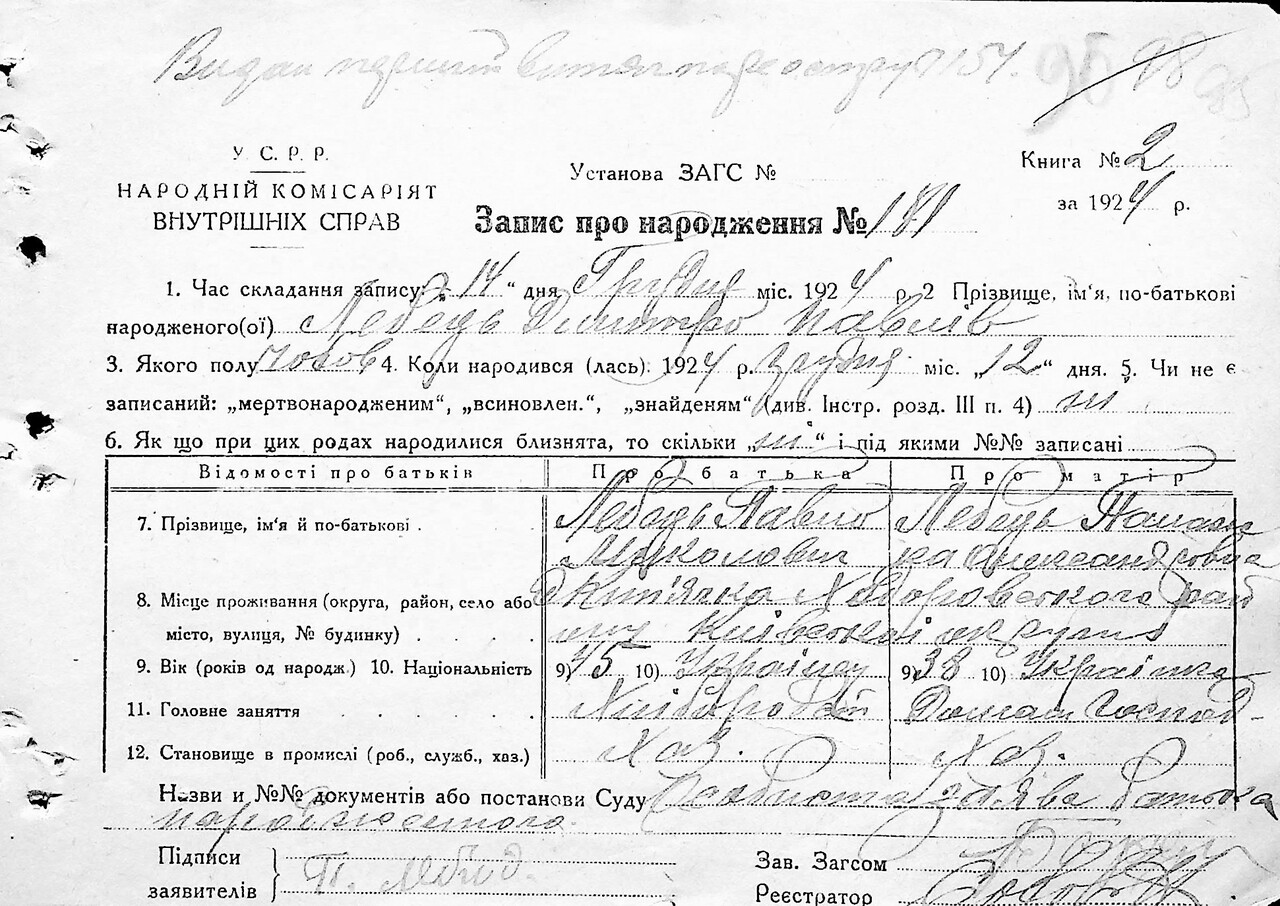 Видан перший витяг по реєстру №154.
98
У. С. Р. Р.
НАРОДНІЙ КОМІСАРІЯТ
ВНУТРІШНІХ СПРАВ
Установа ЗАГС №
Книга № 2
за 1924 р.
Запис про народження № 181
1. Час складання запису: „14“ дня Грудня міс. 1924 р. 2 Прізвище, ім‘я, по-батькові
народженого(ої) Лебедь Дмитро Павлів
3. Якого полу чолов 4. Коли народився (лась): 1924 р. грудня міс. „12“ дня. 5. Чи не є
записаний: „мертвонародженим“, „всиновлен.“, „знайденям“ (див. Інстр. розд. III п. 4) ні
6. Як що при цих родах народилися близнята, то скільки „ні“ і під якими №№ записані
Відомості про батьків Про батька Про матір
7. Прізвище, ім‘я й по-батькові . Лебедь Павло Лебедь
Миколович Александровна
8. Місце проживання (округа, район, село або Ходоровського рай
місто, вулиця, № будинку) . . . . ону Київської округи
9. Вік (років од народж.) 10. Національність 9) 45 10) Українец 9) 38 10) Українка
11. Головне заняття . . . . . Хлібороб Домаш Господ-
12. Становище в промислі (роб., служб., хаз.) Хаз. Хаз.
Назви и №№ документів або постанови Суду Особиста заява батька
народженого.
Підписи
заявителів П. Лебід.
Зав. Загсом
Реєстратор